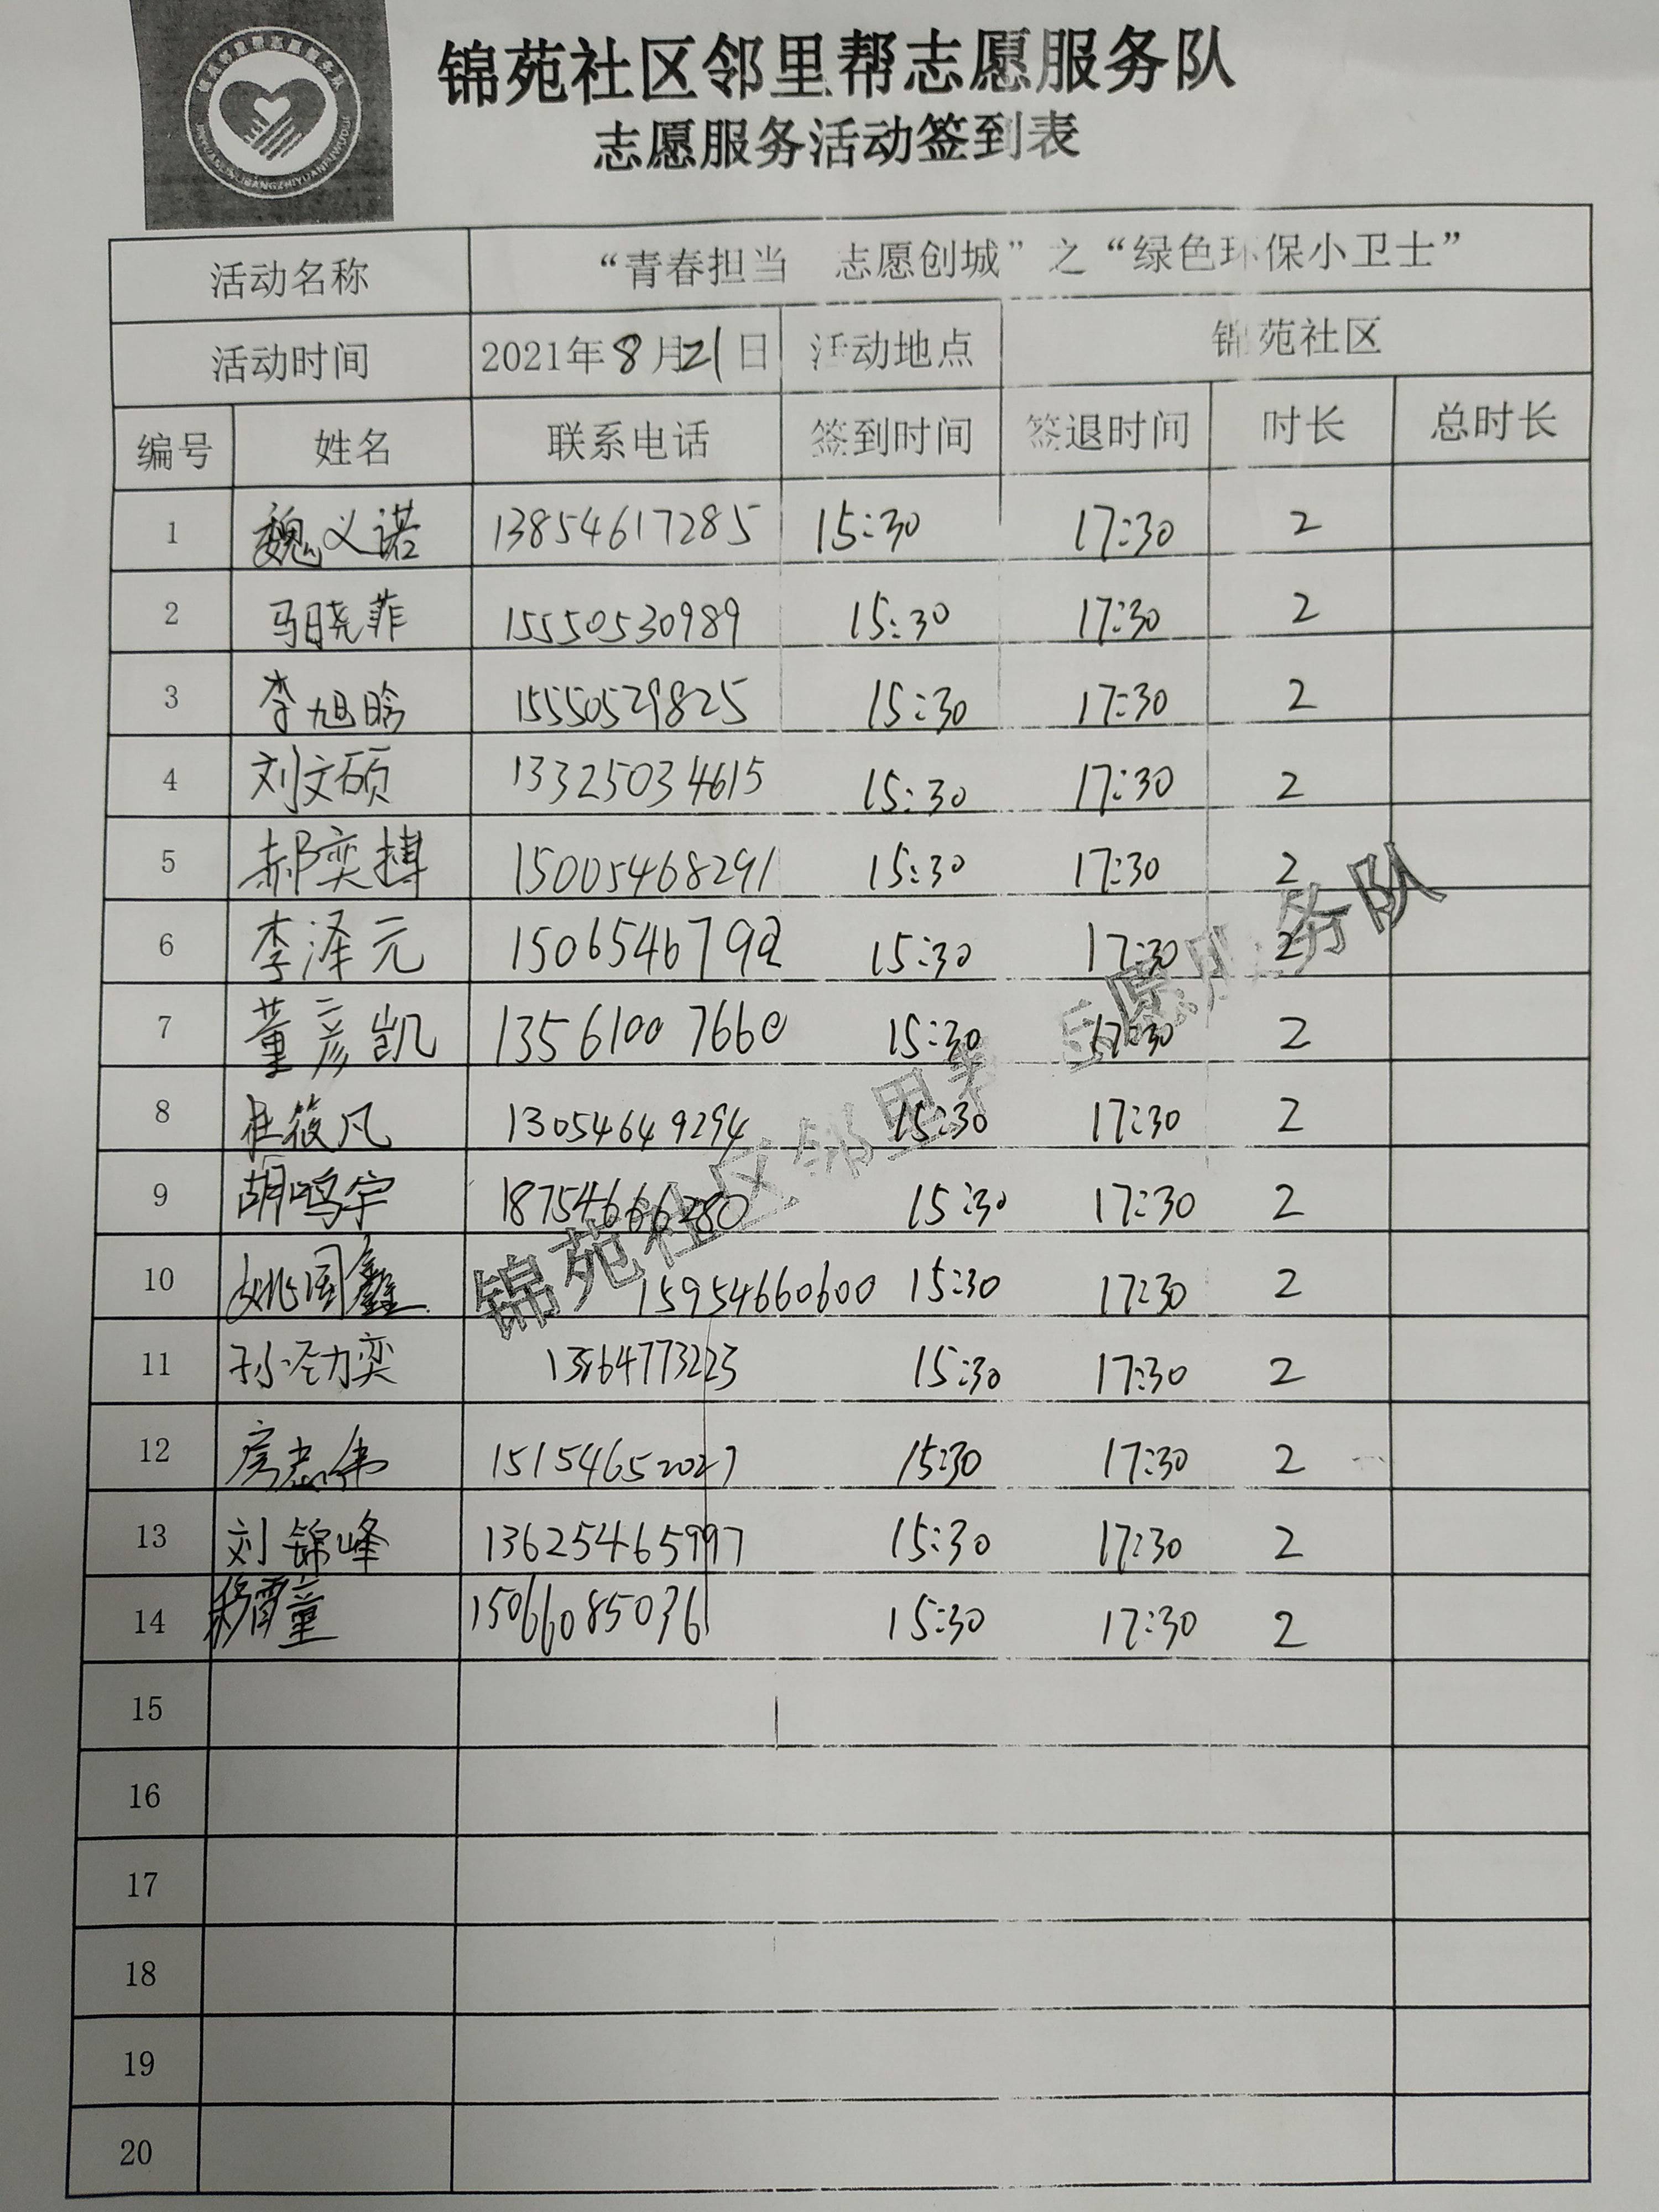 锦苑社区邻里帮志愿服务队
志愿服务活动签到表
活动名称 “青春担当 志愿创城”之“绿色环保小卫士”
活动时间 2021年8月21日 活动地点 锦苑社区
编号 姓名 联系电话 签到时间 签退时间 时长 总时长
1 魏义诺 13854617285 15:30 17:30 2
2 马晓菲 15550530989 15:30 17:30 2
3 李旭晗 15550529825 15:30 17:30 2
4 刘文硕 13325034615 15:30 17:30 2
5 郝奕搏 15005468291 15:30 17:30 2
6 李泽元 15:30 17:30 2
7 董彦凯 13561007660 15:30 17:30 2
8 杜筱凡 13054649294 15:30 17:30 2
9 胡鸣宇 18754666280 15:30 17:30 2
10 姚国鑫 15954660600 15:30 17:30 2
11 孙劲奕 15:30 17:30 2
12 房志伟 15154652027 15:30 17:30 2
13 刘锦峰 13625465997 15:30 17:30 2
14 15066085036 15:30 17:30 2
15
16
17
18
19
20
锦苑社区邻里帮志愿服务队